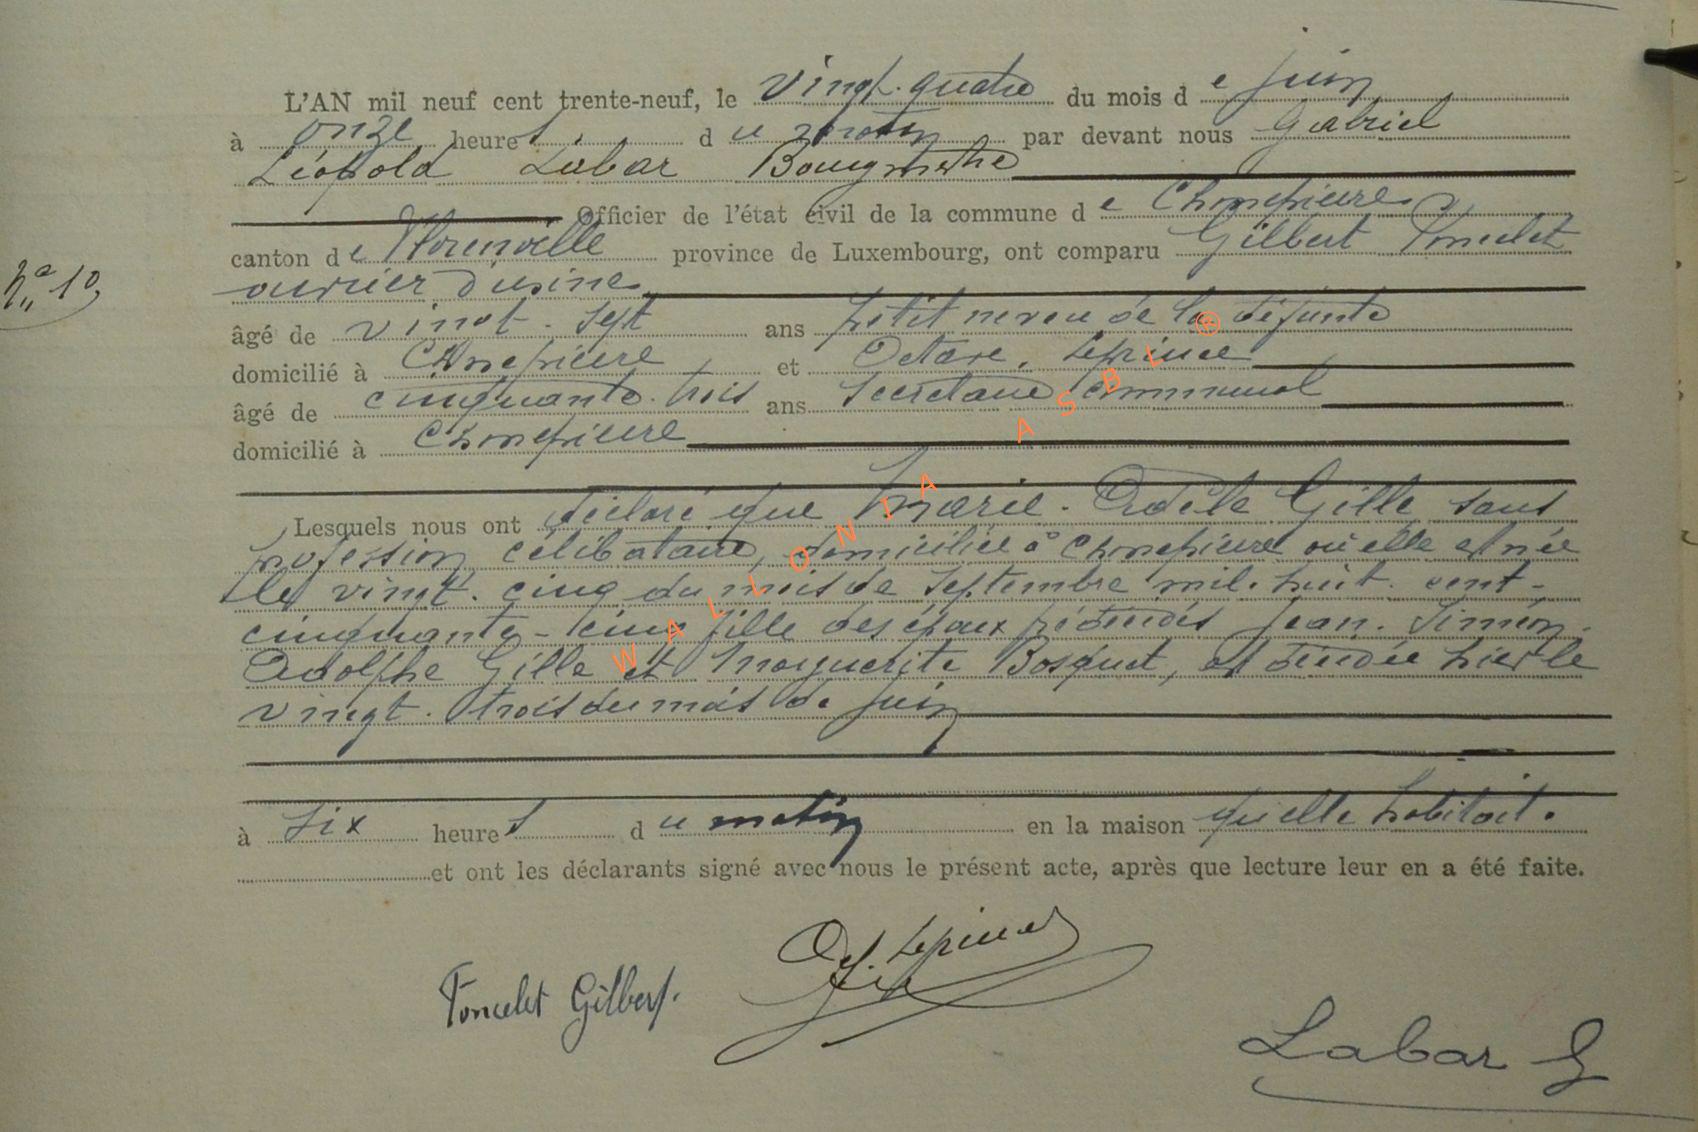 L'AN mil neuf cent trente-neuf, le vingt-quatre du mois de juin
à onze heures du matin par devant nous Gabriel
Léopold Labar Bourgmestre
Officier de l'état civil de la commune de Chassepierre
canton de Florenville province de Luxembourg, ont comparu Gilbert Poncelet
ouvrier d'usine
N° 10
âgé de vingt-sept ans petit neveu de la défunte
domicilié à Chassepierre et Octave Lepinee
âgé de cinquante-trois ans secrétaire communal
domicilié à Chassepierre
Lesquels nous ont déclaré que Marie-Adèle Gille sans
profession célibataire, domiciliée à Chassepierre où elle est née
le vingt-cinq du mois de septembre mil-huit-cent-
cinquante-cinq fille des époux décédés Jean-Simon-
Adolphe Gille et Marguerite Bosquet, est décédée hier le
vingt-trois du mois de juin
à six heures du matin en la maison qu'elle habitait.
et ont les déclarants signé avec nous le présent acte, après que lecture leur en a été faite.
Poncelet Gilbert.
Labar G
WALLONIA ASBL ®